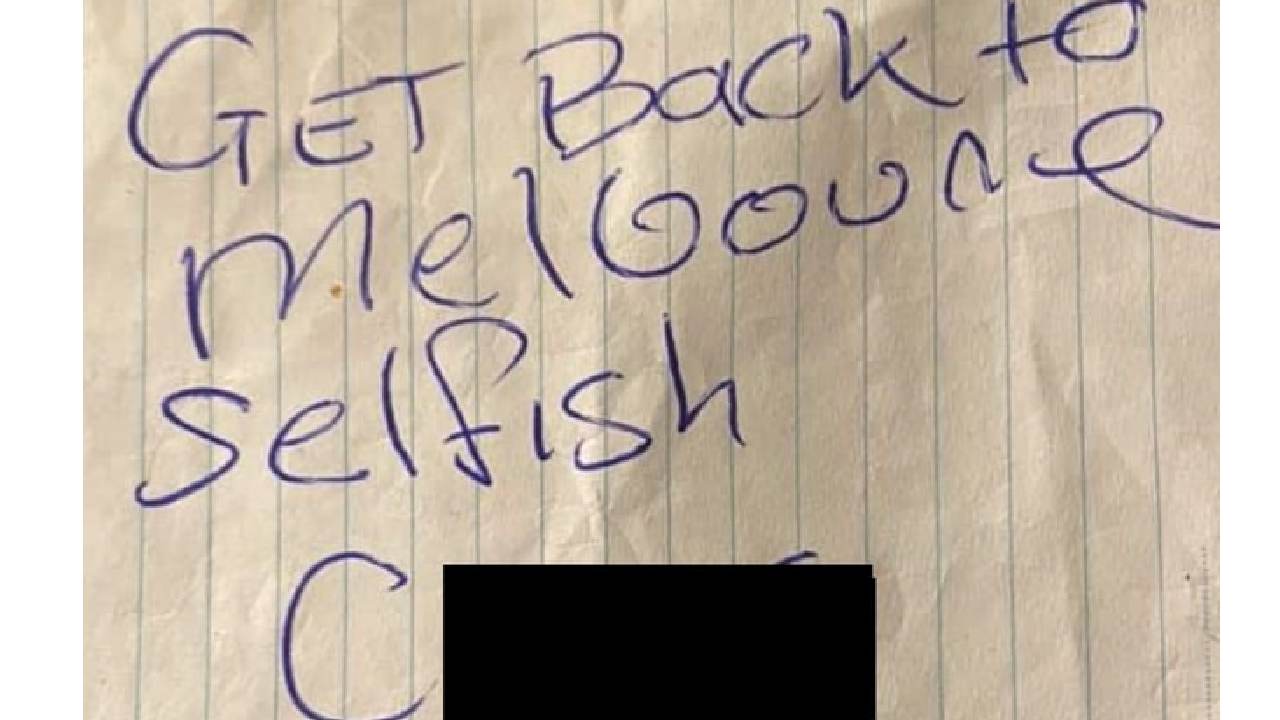 GET Back to
melboune
selfish
C